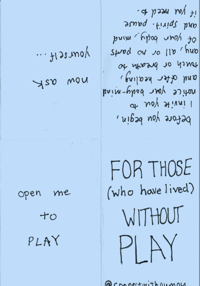 before you begin,
I invite you to
notice your body-mind
and offer healing,
touch or breath to
any, all or no parts
of your body, mind
and spirit. pause
if you need to.
now ask
yourself...
open me
to
PLAY
FOR THOSE
(who have lived)
WITHOUT
PLAY